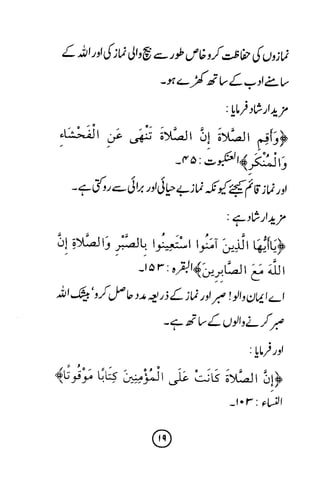 نمازوں کی حفاظت کرو خاص طور سے بیچ والی نماز کی اور اللہ کے
سامنے ادب کے ساتھ کھڑے ہو۔
مزید ارشاد فرمایا :
﴿وَأَقِمِ الصَّلاَةَ إِنَّ الصَّلاَةَ تَنْهَى عَنِ الْفَحْشَاءِ
وَالْمُنْكَرِ﴾ العنکبوت : ۴۵۔
اور نماز قائم کیجئے کیونکہ نماز بے حیائی اور برائی سے روکتی ہے۔
مزید ارشاد ہے :
﴿يَاأَيُّهَا الَّذِينَ آمَنُوا اسْتَعِينُوا بِالصَّبْرِ وَالصَّلاَةِ إِنَّ
اللَّهَ مَعَ الصَّابِرِينَ﴾ البقرہ : ۱۵۳۔
اے ایمان والو! صبر اور نماز کے ذریعہ مدد حاصل کرو، بیشک اللہ
صبر کرنے والوں کے ساتھ ہے۔
اور فرمایا :
﴿إِنَّ الصَّلاَةَ كَانَتْ عَلَى الْمُؤْمِنِينَ كِتَابًا مَوْقُوتًا﴾
النساء : ۱۰۳۔
۱۹